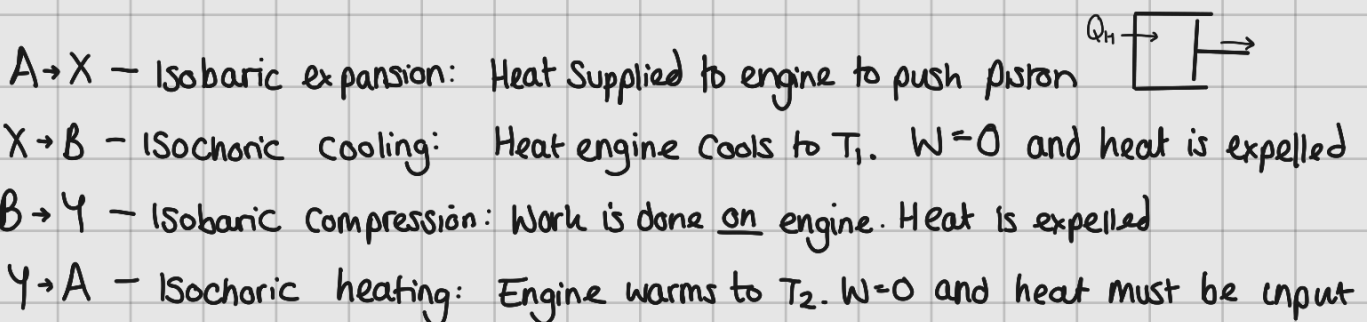 Q_H →
A→X – Isobaric expansion: Heat Supplied to engine to push piston
X→B – Isochoric cooling: Heat engine cools to T₁. W=0 and heat is expelled
B→Y – Isobaric compression: Work is done on engine. Heat is expelled
Y→A – Isochoric heating: Engine warms to T₂. W=0 and heat must be input